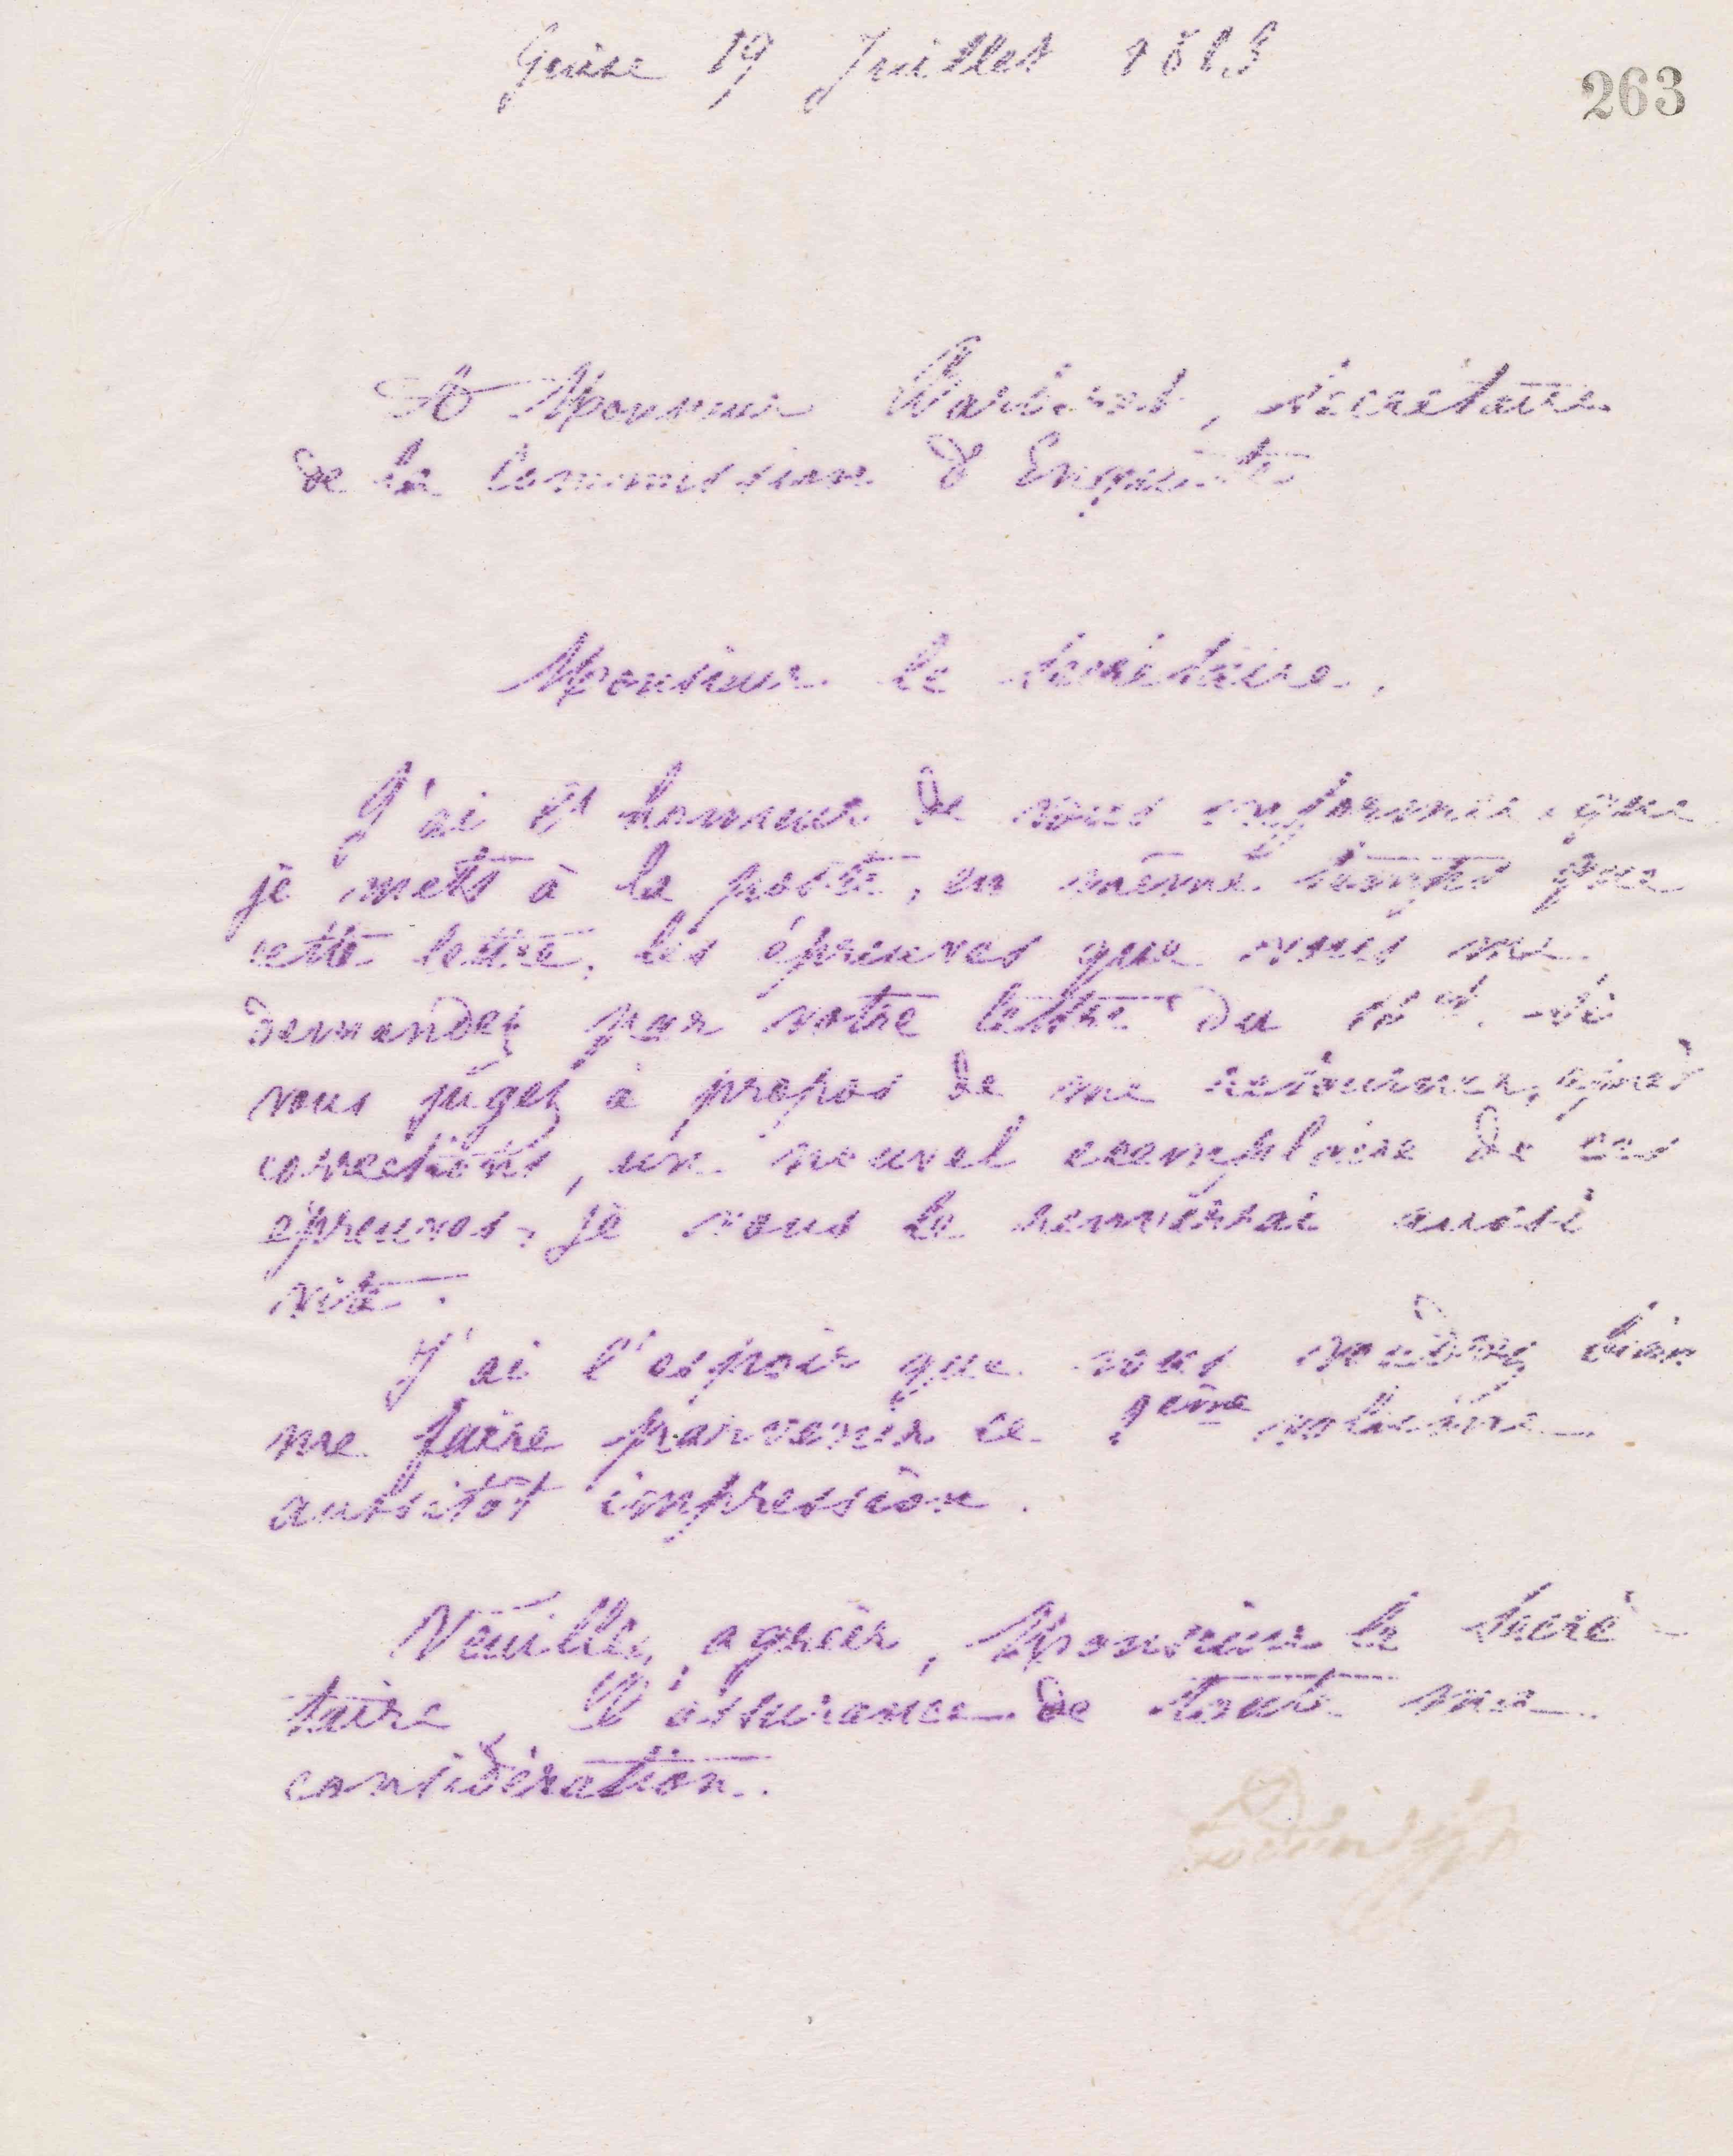 Guise 19 Juillet 1883
263
A Monsieur Barberet, secrétaire
de la Commission d'Enquête
Monsieur le secrétaire,
J'ai l'honneur de vous informer que
je mets à la poste, en même temps que
cette lettre, les épreuves que vous me
demandez par votre lettre du Ct. Si
vous jugez à propos de me retourner, après
corrections, un nouvel exemplaire de ces
épreuves, je vous le renverrai aussi
vite.
J'ai l'espoir que vous voudrez bien
me faire parvenir ce volume
aussitôt impression.
Veuillez agréer, Monsieur le Secré-
taire, l'assurance de toute ma
considération.
Godin